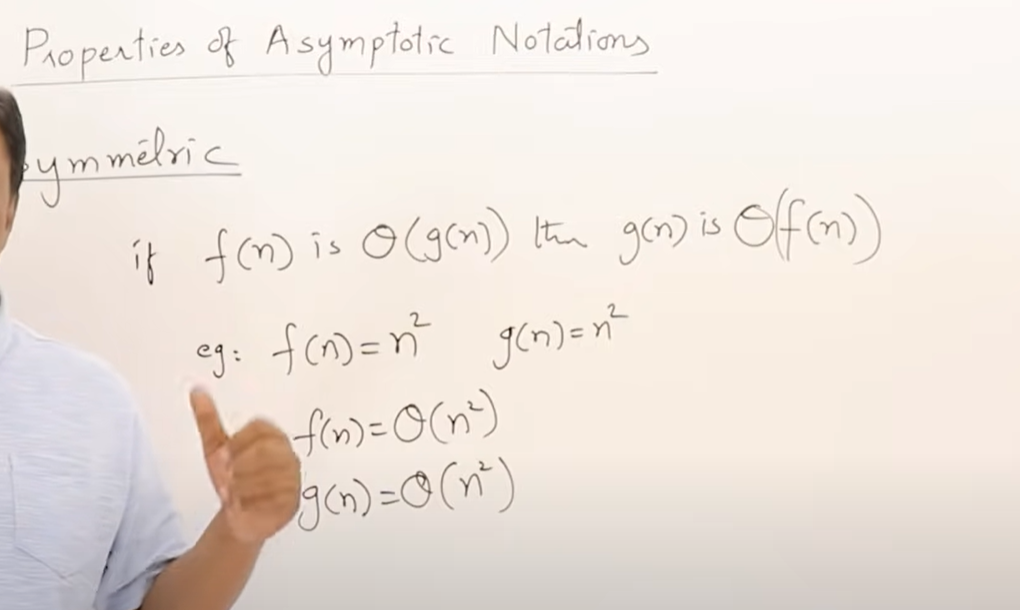 Properties of Asymptotic Notations
ymmetric
if f(n) is Θ(g(n)) then g(n) is Θ(f(n))
eg: f(n)=n² g(n)=n²
f(n)=Θ(n²)
g(n)=Θ(n²)